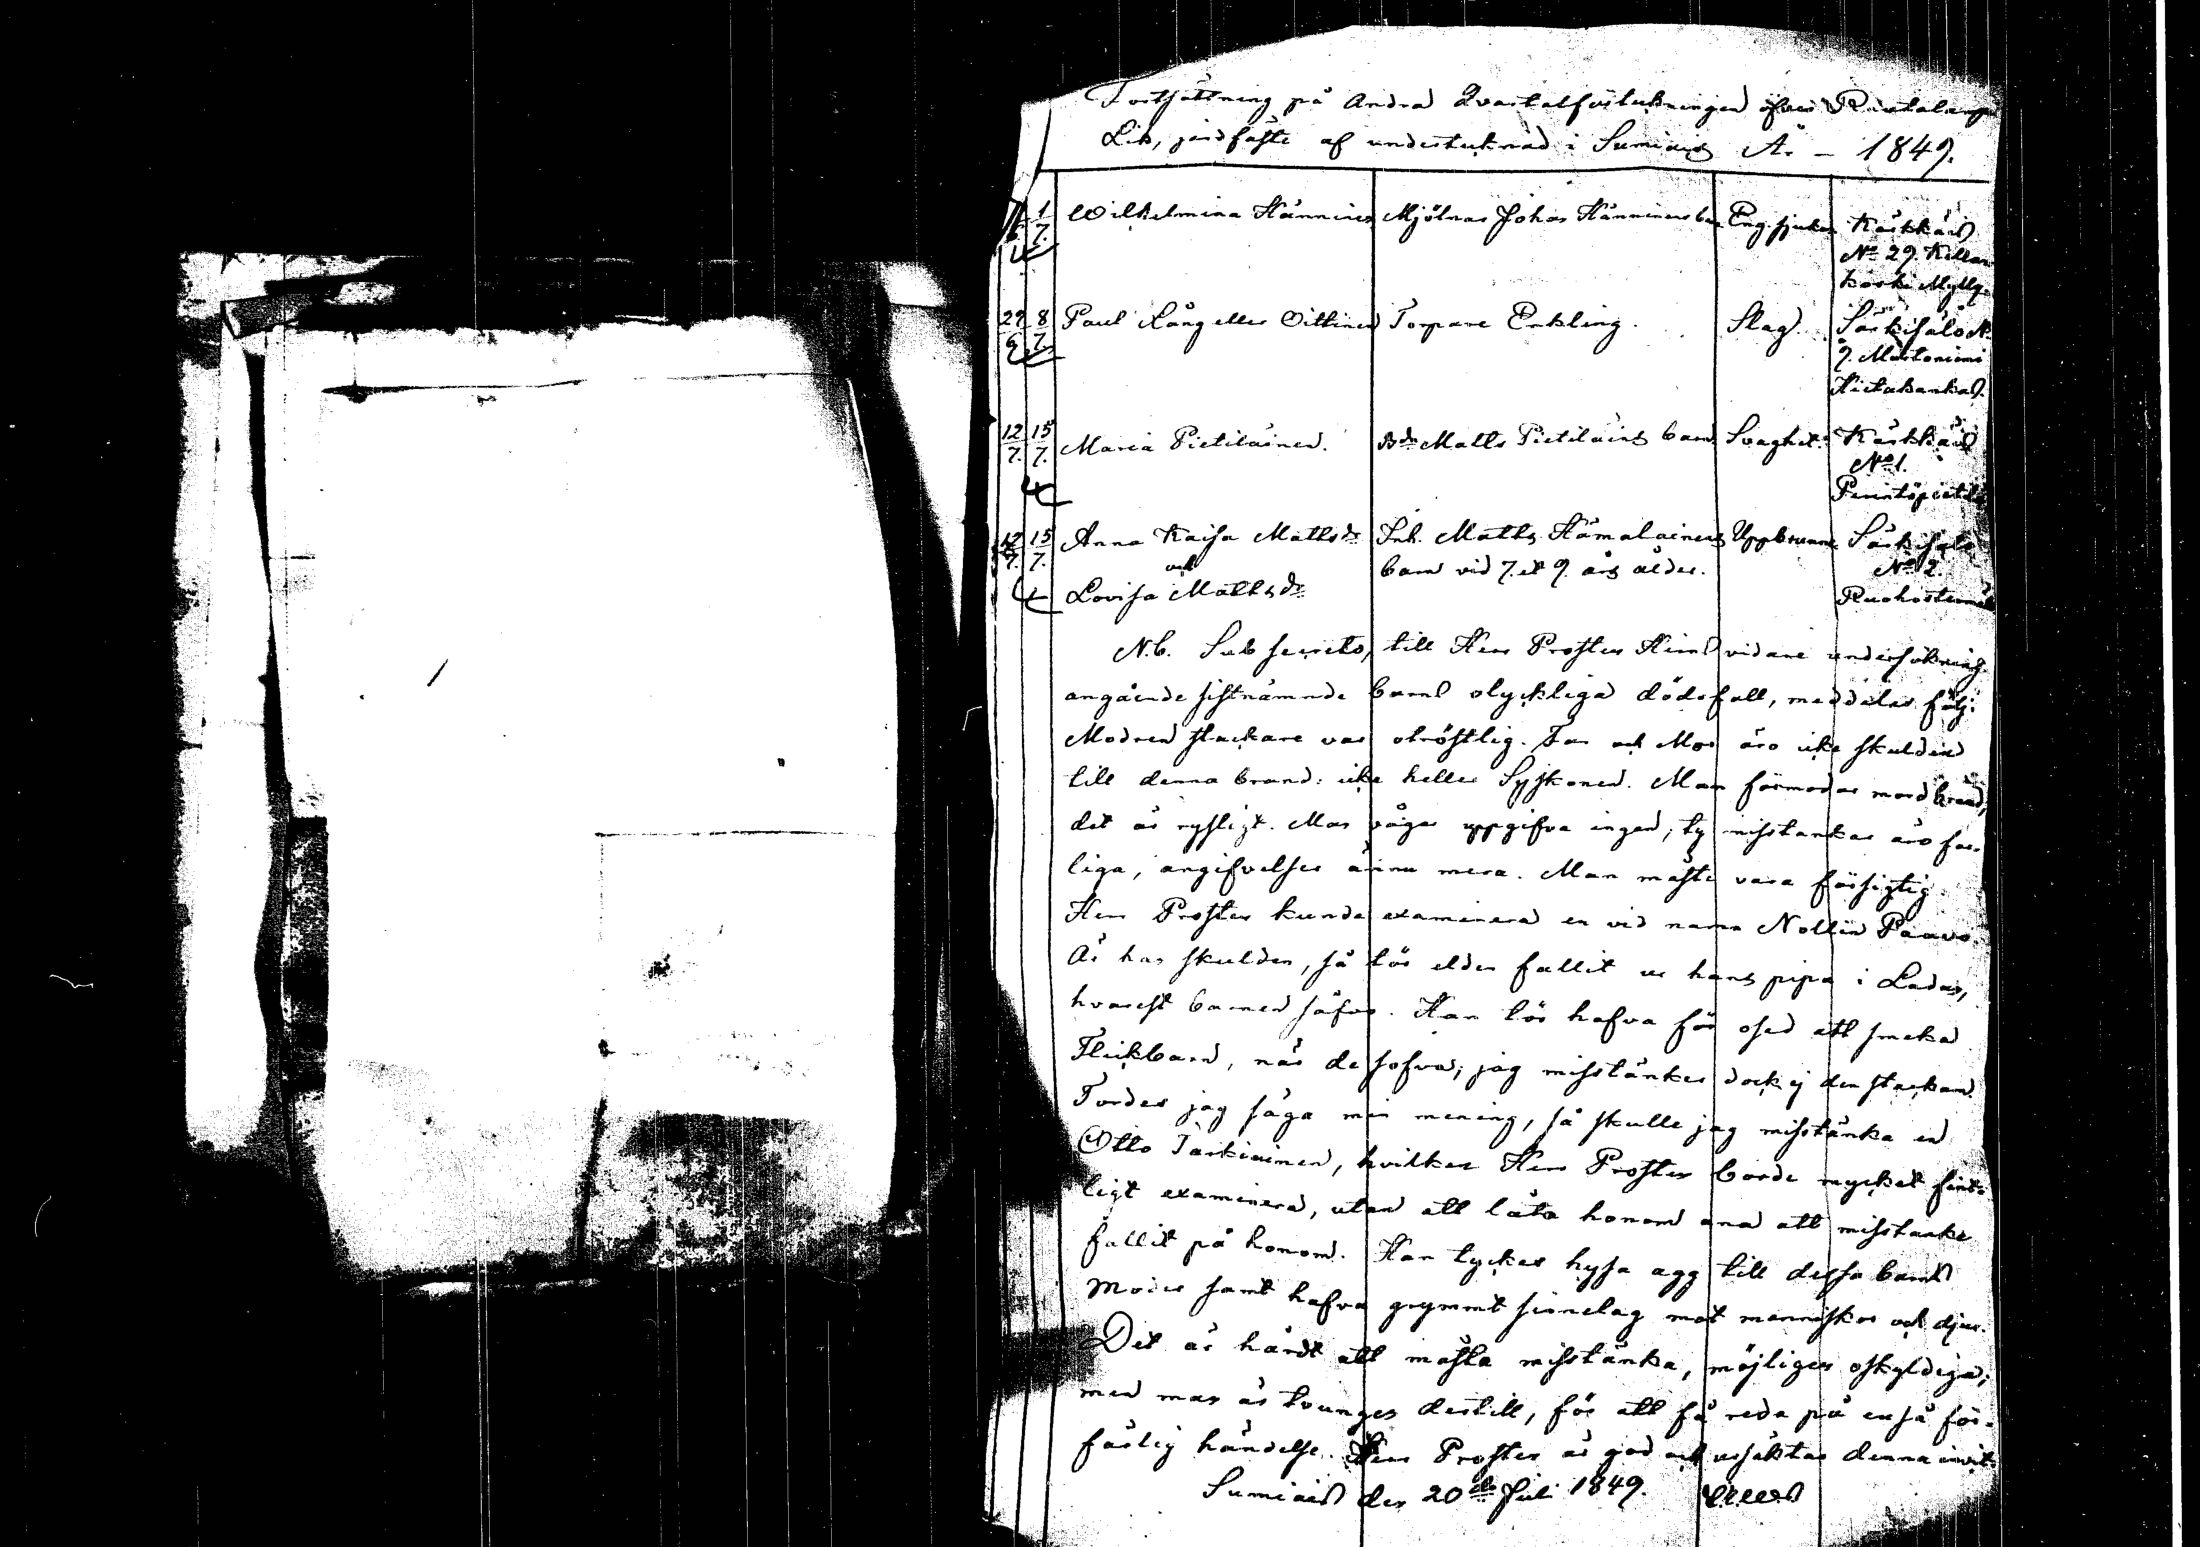 Fortsättning på Andra Qvartalförtekningen öfver Rautalampi
Lik, jordfäste af undertecknad i Sumiais År - 1849.
1/7. Wilhelmina Hänninen Mjölnar Johan Hänninens barn Eng. sjukan Kärkkäis
No 29. Kellan
koski Mylly.
29/6 8/7. Paul Lång eller Oittinen Torpare Enkling. Slag. Särkisalo No
9. Mustoniemi
Hietakankas.
12/7. 15/7. Maria Pietiläinen. Bd. Matts Pietiläins barn Svaghet. Kärkkäis
No 1.
12/7. 15/7. Anna Kaisa Mattsdr Inh. Matts Hämäläinens Uppbrunne Särkisalo
och barn vid 7. et 9. års ålder. No 2.
Lovisa Mattsdr
N.b. Sub secreto, till Herr Prosten Heml vidare undersökning
angående sistnämnde barns olyckliga dödsfall, meddelas följ:
Modren stackare var otröstlig. Far och Mor äro icke skulden
till denna brand: icke heller Syskonen. Man förmodar mordbrand,
det är rysligt. Man vågar uppgifva ingen, ty misstankar äro far-
liga, angifvelser ännu mera. Man måste vara försigtig.
Herr Prosten kunde examinera en vid namn Nollin Paavo.
Är han skulden, så lör elden fallit ur hans pipa i Ladan,
hvarest barnen såfvo. Han lör hafva för osed att smeka
Flickbarn, när de sofva; jag misstänker dock ej den stackarn.
Tordes jag säga min mening, så skulle jag misstänka en
Otto Tarkiainen, hvilken Herr Prosten borde mycket fint-
ligt examinera, utan att låta honom ana att misstanke
fallit på honom. Han tyckes hysa agg till dessa barns
Moder samt hafva grymmt sinnelag mot menniskor och djur.
Det är hårdt att måsta misstänka, möjligen oskyldiga;
men man är tvungen dertill, för att få reda på en så för-
färlig händelse. Herr Prosten är god och ursäktar denna
Sumiais den 20de Juli 1849.